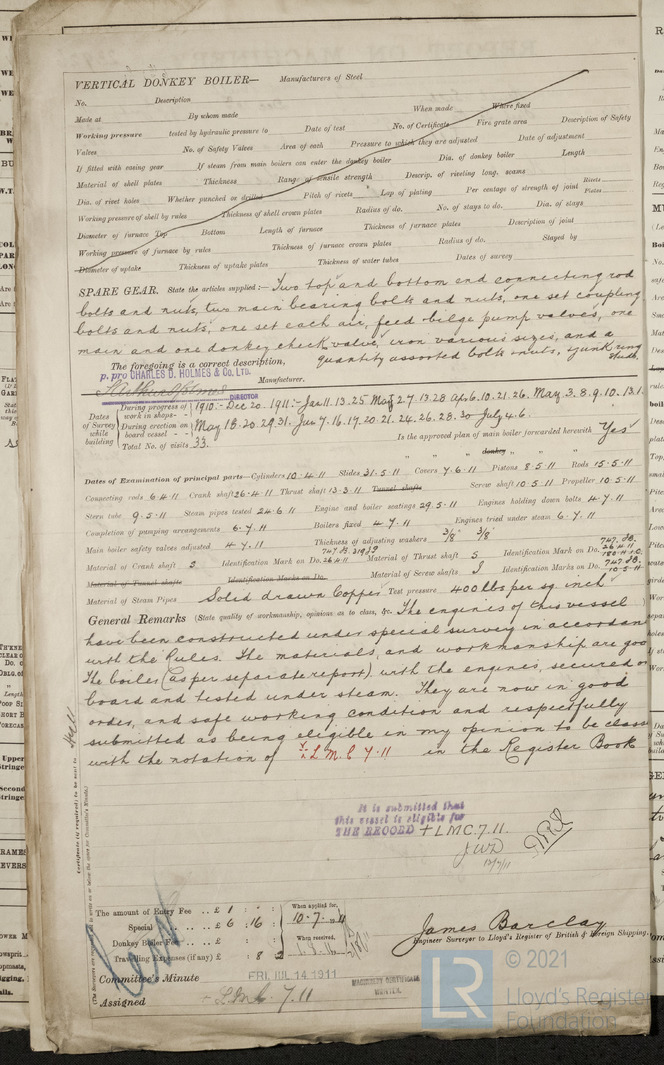 VERTICAL DONKEY BOILER— Manufacturers of Steel
No. Description
Made at By whom made When made Where fixed
Working pressure tested by hydraulic pressure to Date of test No. of Certificate Fire grate area Description of Safety
Valves No. of Safety Valves Area of each Pressure to which they are adjusted Date of adjustment
If fitted with easing gear If steam from main boilers can enter the donkey boiler Dia. of donkey boiler Length
Material of shell plates Thickness Range of tensile strength Descrip. of riveting long. seams
Dia. of rivet holes Whether punched or drilled Pitch of rivets Lap of plating Per centage of strength of joint Rivets Plates
Working pressure of shell by rules Thickness of shell crown plates Radius of do. No. of stays to do. Dia. of stays
Diameter of furnace Top Bottom Length of furnace Thickness of furnace plates Description of joint
Working pressure of furnace by rules Thickness of furnace crown plates Radius of do. Stayed by
Diameter of uptake Thickness of uptake plates Thickness of water tubes Dates of survey
SPARE GEAR. State the articles supplied:— Two top and bottom end connecting rod
bolts and nuts, two main bearing bolts and nuts, one set coupling
bolts and nuts, one set each air, feed bilge pump valves, one
main and one donkey check valve, iron various sizes, and a
quantity assorted bolts & nuts, & junk ring studs.
The foregoing is a correct description,
p. pro CHARLES D. HOLMES & Co. LTD.
Manufacturer.
DIRECTOR
Dates of Survey while building
During progress of work in shops - - 1910:- Dec 20. 1911:- Jan 11. 13. 25 Mar 7. 13. 28 Apr 6. 10. 21. 26. May 3. 8. 9. 10. 13. 1
During erection on board vessel - - May 18. 20. 29. 31. Jun 7. 16. 19. 20. 21. 24. 26. 28. 30 July 4. 6.
Total No. of visits 33.
Is the approved plan of main boiler forwarded herewith Yes
" " " donkey " "
Dates of Examination of principal parts—Cylinders 10.4.11 Slides 31.5.11 Covers 7.6.11 Pistons 8.5.11 Rods 15.5.11
Connecting rods 6.4.11 Crank shaft 26.4.11 Thrust shaft 13.3.11 Tunnel shafts Screw shaft 10.5.11 Propeller 10.5.11
Stern tube 9.5.11 Steam pipes tested 24.6.11 Engine and boiler seatings 29.5.11 Engines holding down bolts 4.7.11
Completion of pumping arrangements 6.7.11 Boilers fixed 4.7.11 Engines tried under steam 6.7.11
Main boiler safety valves adjusted 4.7.11 Thickness of adjusting washers 3/8 3/8
Material of Crank shaft S Identification Mark on Do. 26.4.11 Material of Thrust shaft S Identification Mark on Do.
Material of Tunnel shafts Identification Marks on Do. Material of Screw shafts Identification Marks on Do. 10.5.11
Material of Steam Pipes Solid drawn Copper Test pressure 400 lbs per sq. inch
General Remarks (State quality of workmanship, opinions as to class, &c. The engines of this vessel
have been constructed under special survey in accordan
with the Rules. The materials and workmanship are goo
The boiler (as per separate report), with the engines, secured o
board and tested under steam. They are now in good
order, and safe working condition and respectfully
submitted as being eligible in my opinion to be class
with the notation of + L.M.C 7.11 in the Register Book
It is submitted that
this vessel is eligible for
THE RECORD + LMC. 7.11.
JWD
12/7/11
Hull
Certificate (if required) to be sent to
The amount of Entry Fee .. £ 1 : :
Special .. £ 6 : 16 :
Donkey Boiler Fee .. £ : :
Travelling Expenses (if any) £ : 8 :
When applied for, 10.7.11
When received,
James Barclay
Engineer Surveyor to Lloyd's Register of British & Foreign Shipping.
Committee's Minute FRI. JUL 14 1911
Assigned + L.M.C. 7.11
MACHINERY CERTIFICATE
WRITTEN.
© 2021
LR
Lloyd's Register
Foundation